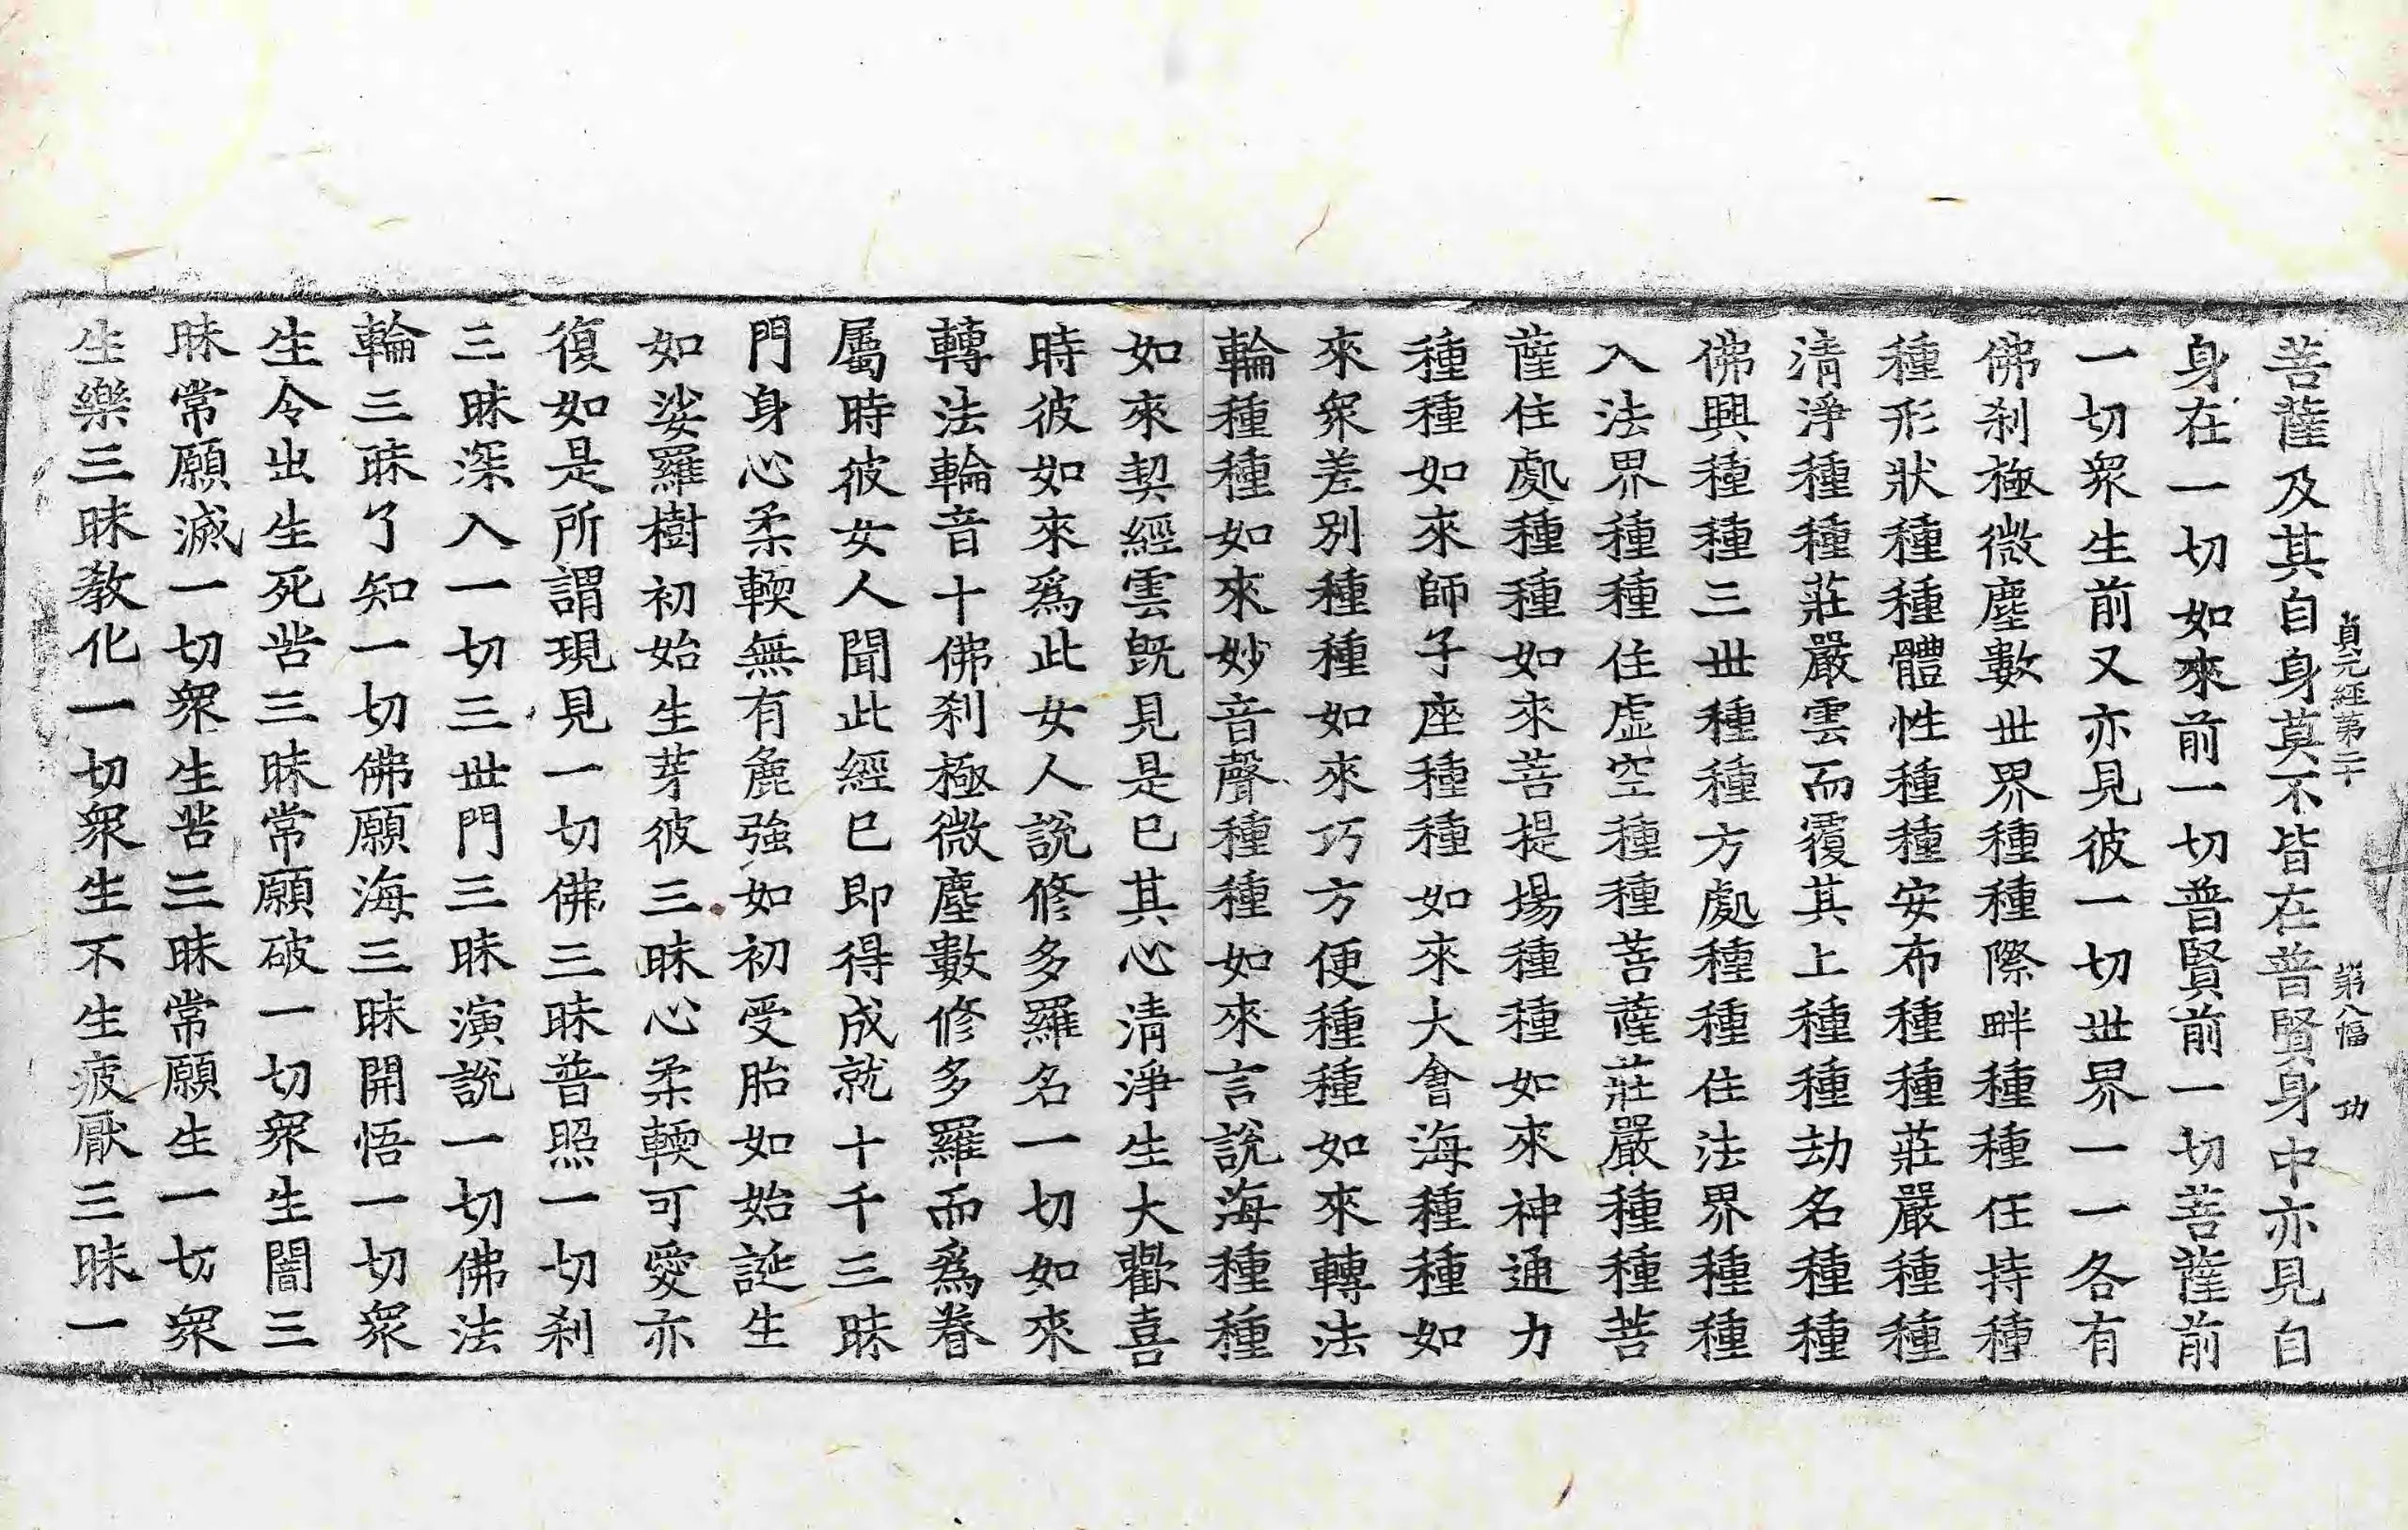 貞元經第二十 第八幅 功
菩薩及其自身莫不皆在普賢身中亦見自
身在一切如來前一切普賢前一切菩薩前
一切衆生前又亦見彼一切世界一一各有
佛刹極微塵數世界種種際畔種種任持種
種形狀種種體性種種安布種種莊嚴種種
清淨種種莊嚴雲而覆其上種種劫名種種
佛興種種三世種種方處種種住法界種種
入法界種種住虛空種種菩薩莊嚴種種菩
薩住處種種如來菩提場種種如來神通力
種種如來師子座種種如來大會海種種如
來衆差別種種如來巧方便種種如來轉法
輪種種如來妙音聲種種如來言說海種種
如來契經雲旣見是已其心清淨生大歡喜
時彼如來爲此女人說修多羅名一切如來
轉法輪音十佛刹極微塵數修多羅而爲眷
屬時彼女人聞此經已即得成就十千三昧
門身心柔輭無有麁強如初受胎如始誕生
如娑羅樹初始生芽彼三昧心柔輭可愛亦
復如是所謂現見一切佛三昧普照一切刹
三昧深入一切三世門三昧演說一切佛法
輪三昧了知一切佛願海三昧開悟一切衆
生令出生死苦三昧常願破一切衆生闇三
昧常願滅一切衆生苦三昧常願生一切衆
生樂三昧教化一切衆生不生疲厭三昧一